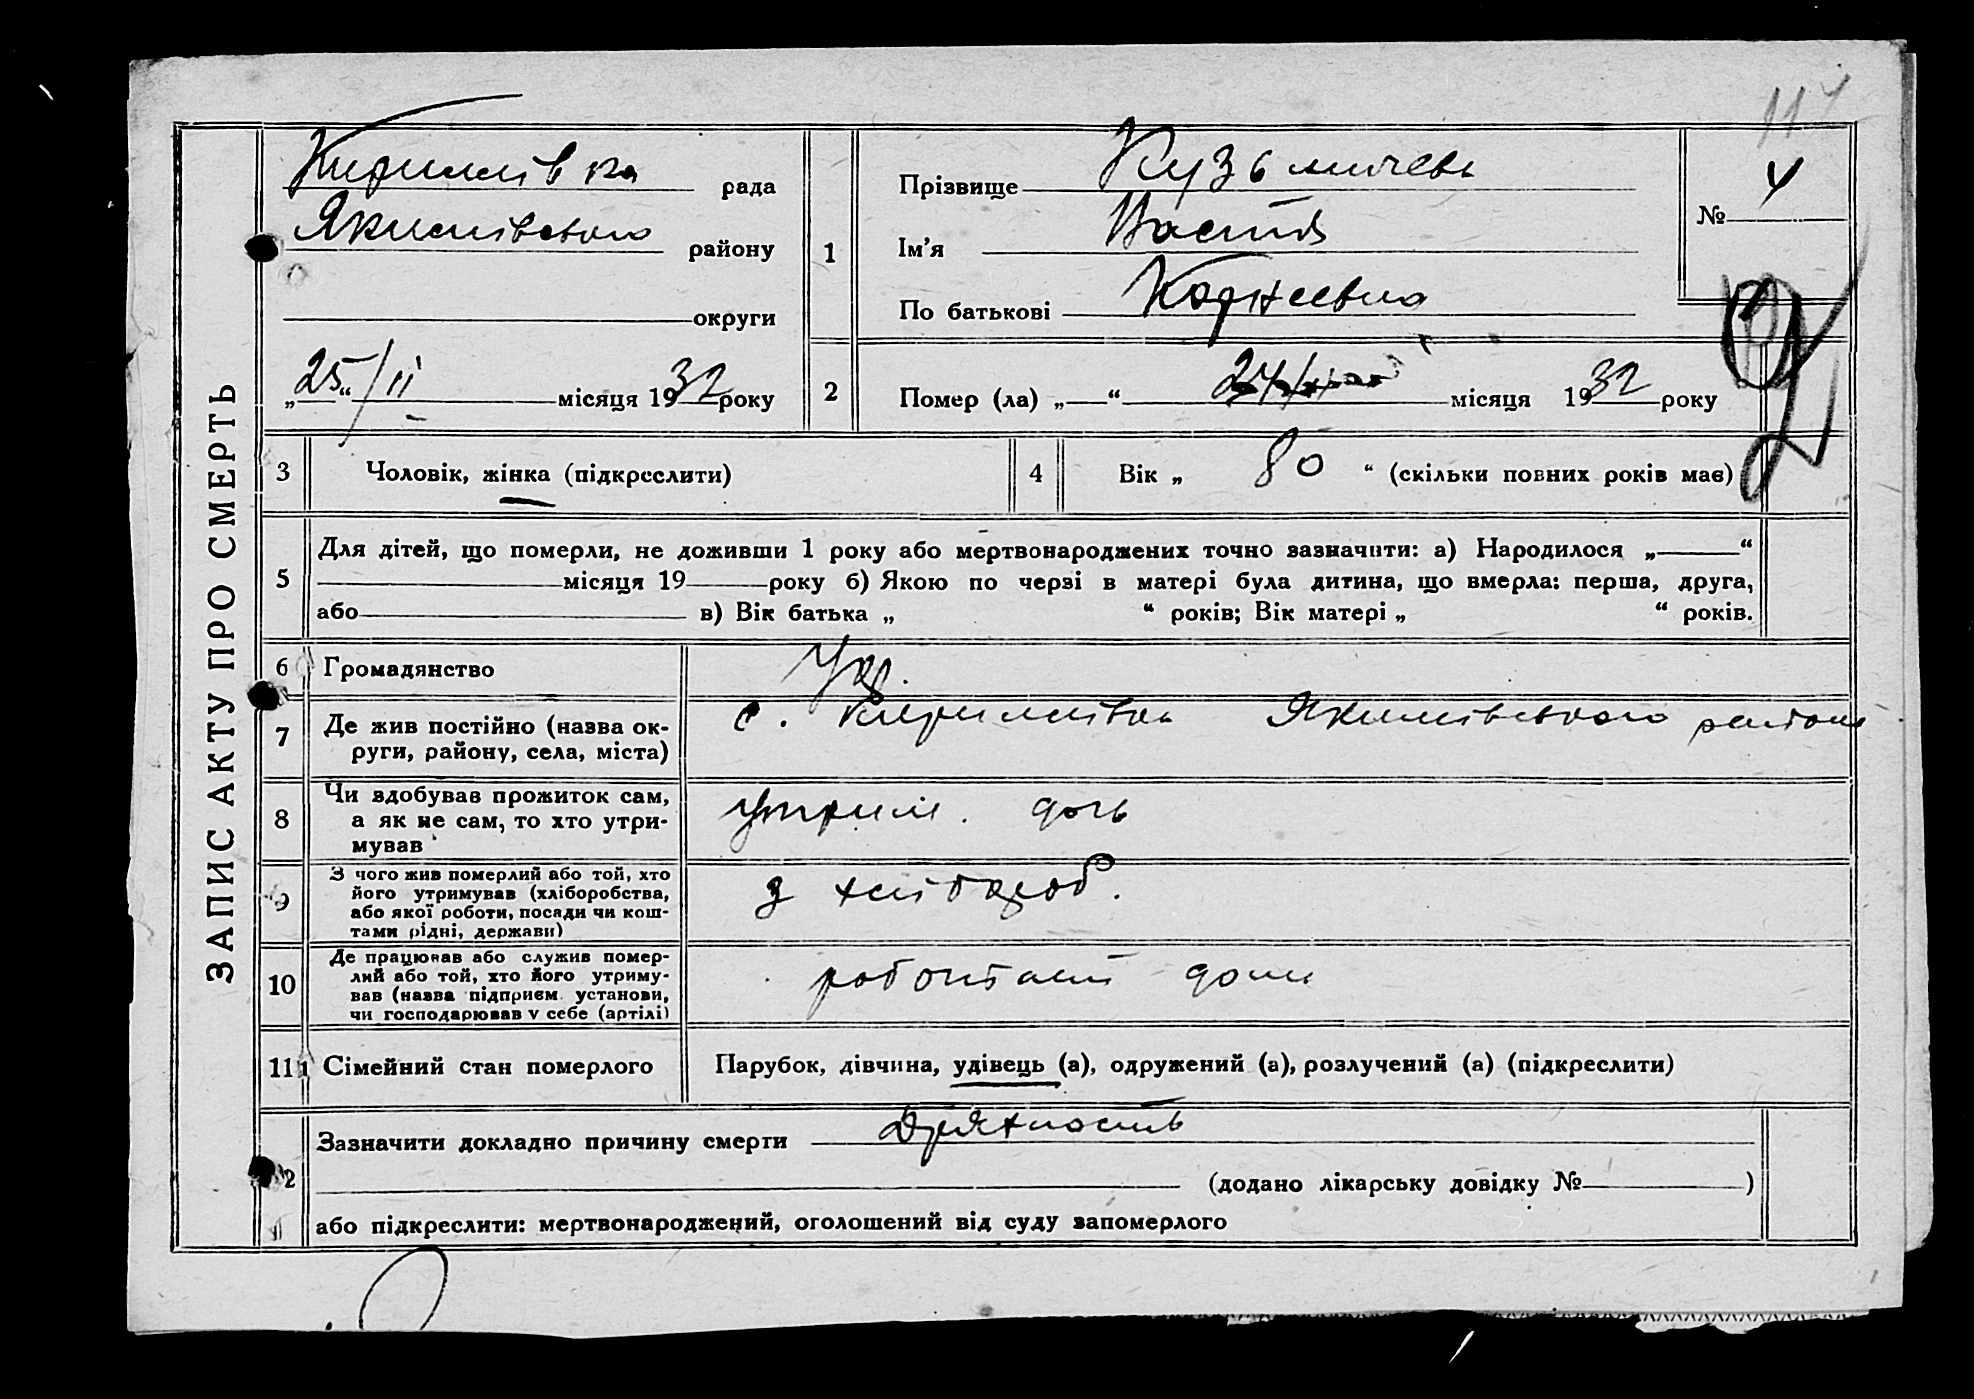 ЗАПИС АКТУ ПРО СМЕРТЬ
117
Кирилівка рада
Якимівського району
округи
„25“/II місяця 1932 року
1
Прізвище Кузьмичева
Ім'я Настя
По батькові Корнеевна
№ 4
2
Помер (ла) „ “ 24/ місяця 1932 року
3 Чоловік, жінка (підкреслити)
4 Вік „ 80 “ (скільки повних років має)
5 Для дітей, що померли, не доживши 1 року або мертвонароджених точно зазначити: а) Народилося „ “
місяця 19 року б) Якою по черзі в матері була дитина, що вмерла: перша, друга,
або в) Вік батька „ “ років; Вік матері „ “ років.
6 Громадянство Укр.
7 Де жив постійно (назва ок-
руги, району, села, міста)
с. Кирилівка Якимівського району
8 Чи здобував прожиток сам,
а як не сам, то хто утри-
мував
утрим. дочь
9 З чого жив померлий або той, хто
його утримував (хліборобства,
або якої роботи, посади чи кош-
тами рідні, держави)
з хлібороб.
10 Де працював або служив помер-
лий або той, хто його утриму-
вав (назва підприєм. установи,
чи господарював у себе (артілі)
дома
11 Сімейний стан померлого Парубок, дівчина, удівець (а), одружений (а), розлучений (а) (підкреслити)
12 Зазначити докладно причину смерти Дряхлость
(додано лікарську довідку № )
або підкреслити: мертвонароджений, оголошений від суду запомерлого